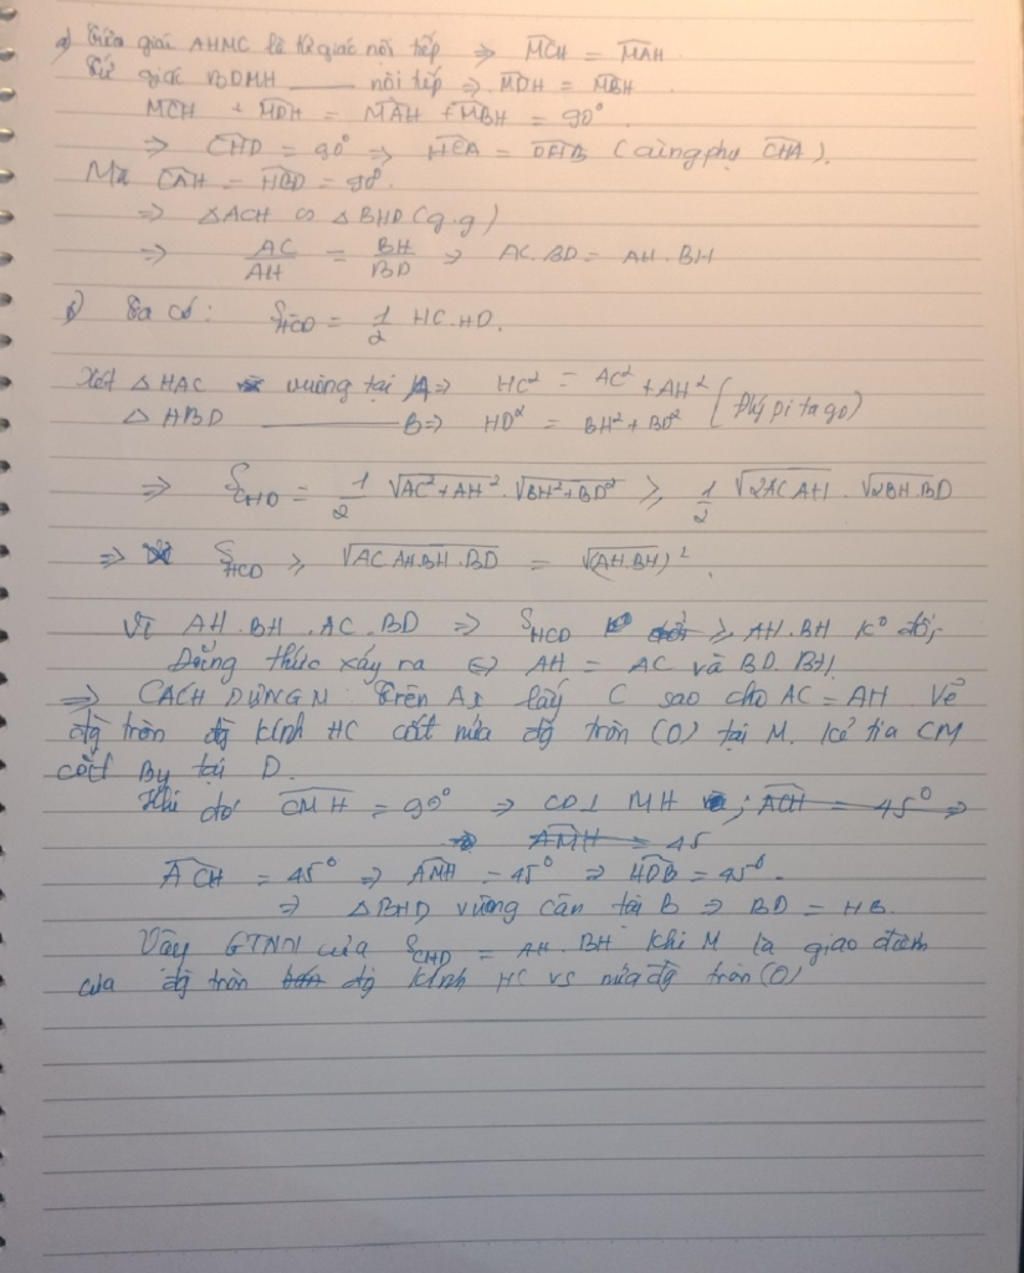 a) Tứa giác AHMC là tứ giác nội tiếp ⇒ MCH = MAH
Tứ giác BDMH —— nội tiếp ⇒ MDH = MBH
MCH + MDH = MAH + MBH = 90°
⇒ CHD = 90° ⇒ HCA = DHB (cùng phụ CHA).
Mà CAH = HBD = 90°.
⇒ △ACH ∽ △BHD (g.g)
⇒ AC/AH = BH/BD ⇒ AC.BD = AH.BH
b) Ta có: S_HCD = 1/2 HC.HD.
Xét △HAC vuông tại A ⇒ HC² = AC² + AH²
△HBD —— B ⇒ HD² = BH² + BD² (Đlý pi ta go)
⇒ S_CHD = 1/2 √AC²+AH² . √BH²+BD² ≥ 1/2 √2AC.AH . √2BH.BD
⇒ S_HCD ≥ √AC.AH.BH.BD = √(AH.BH)².
Vì AH.BH.AC.BD ⇒ S_HCD ≥ AH.BH k° đổi
Đẳng thức xảy ra ⇔ AH = AC và BD.BH
⇒ CÁCH DỰNG M: Trên Ax lấy C sao cho AC = AH. Vẽ
đg tròn đg kính HC cắt nửa đg tròn (O) tại M. Kẻ tia CM
cắt By tại D.
Khi đó CMH = 90° ⇒ CD⊥MH ; ACH = 45° ⇒
⇒ AMH = 45
ACH = 45° ⇒ AMH = 45° ⇒ HDB = 45°.
⇒ △BHD vuông cân tại B ⇒ BD = HB.
Vậy GTNN của S_CHD = AH.BH khi M là giao điểm
của đg tròn đg kính HC vs nửa đg tròn (O)